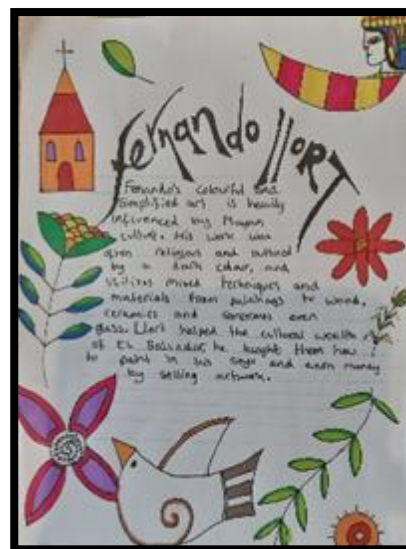 Fernando llORT
Fernando's colourful and
simplified art is heavily
influenced by Mayan
culture. His work was
often religious and outlined
by a dark colour, and
utilizes mixed techniques and
materials from paintings to wood,
ceramics and sometimes even
glass. Llort helped the cultural wealth
of EL Salvador, he taught them how
to paint in his style and earn money
by selling artwork.